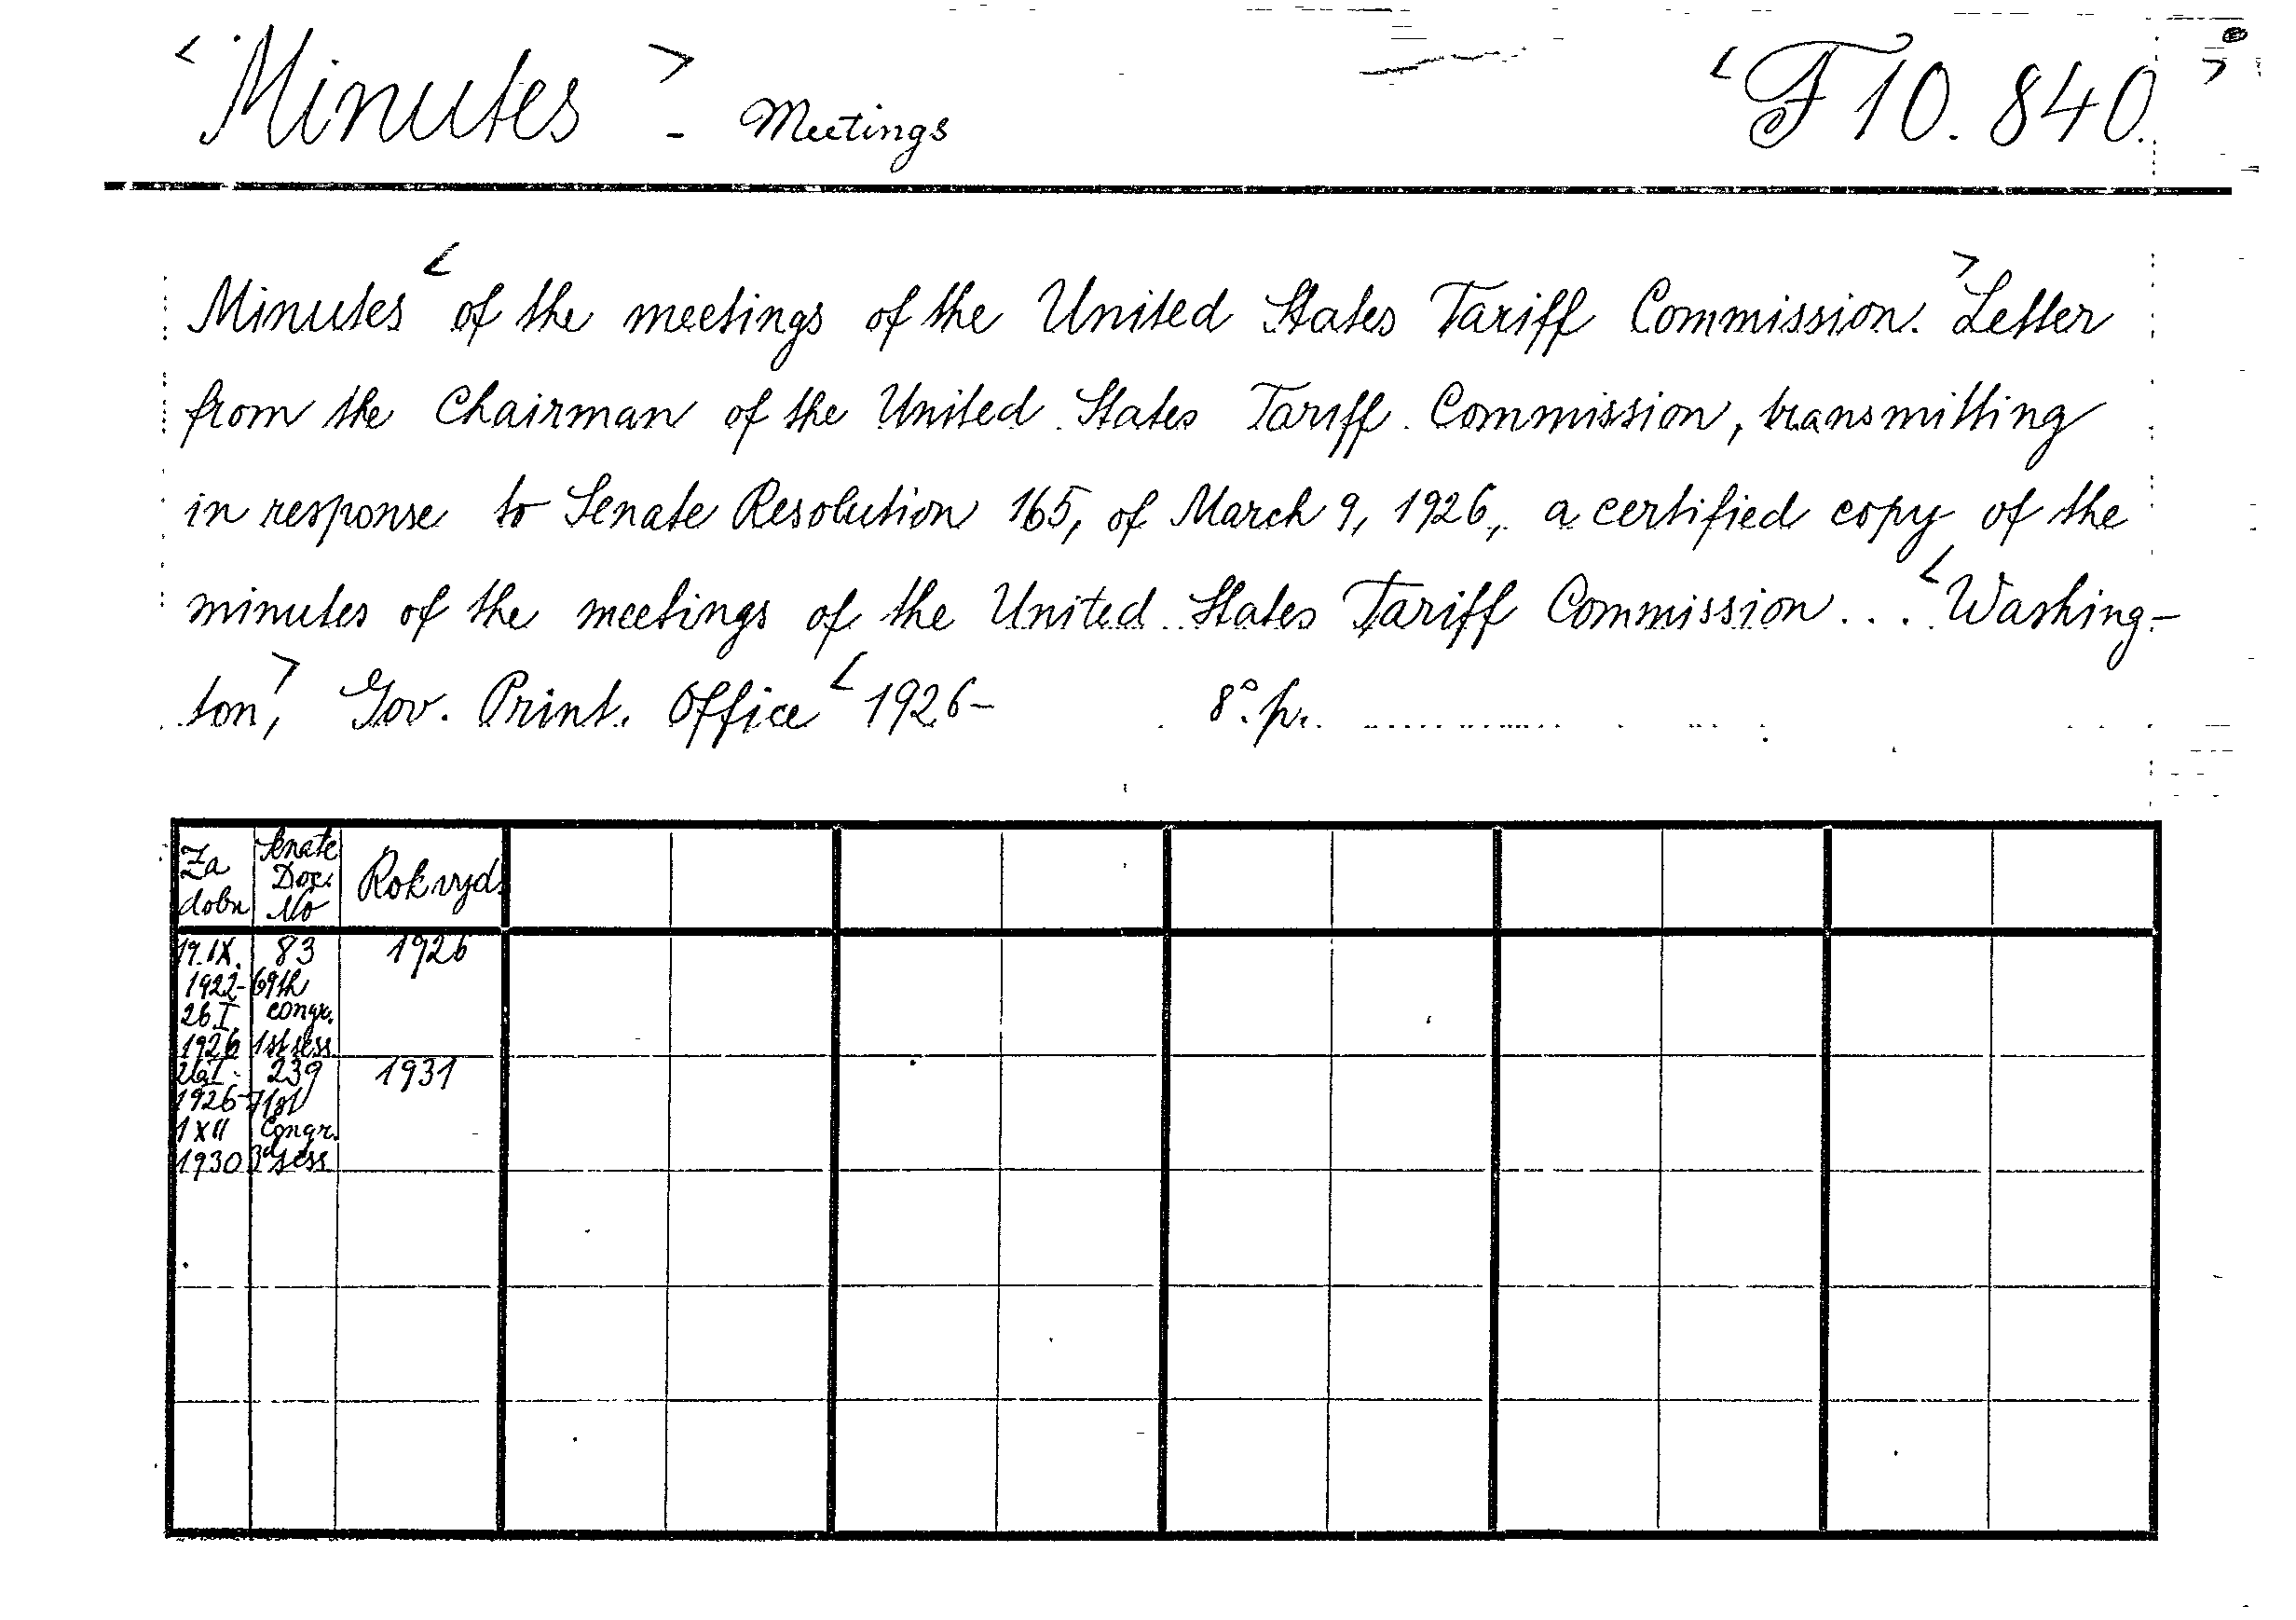 < Minutes > - Meetings < F 10.840. >
Minutes < of the meetings of the United States Tariff Commission. > Letter
from the Chairman of the United States Tariff Commission, transmitting
in response to Senate Resolution 165, of March 9, 1926, a certified copy of the
minutes of the meetings of the United States Tariff Commission .... < Washing-
ton, > Gov. Print. Office < 1926- 8°. pr.
Za
dobu
Senate
Doc.
No
Rok vyd.
19. IX.
1922-
26. I.
1926
83
69th
congr.
1st sess.
1926
26. I.
1926-
1 XII
1930
239
71st
Congr.
3d sess.
1931